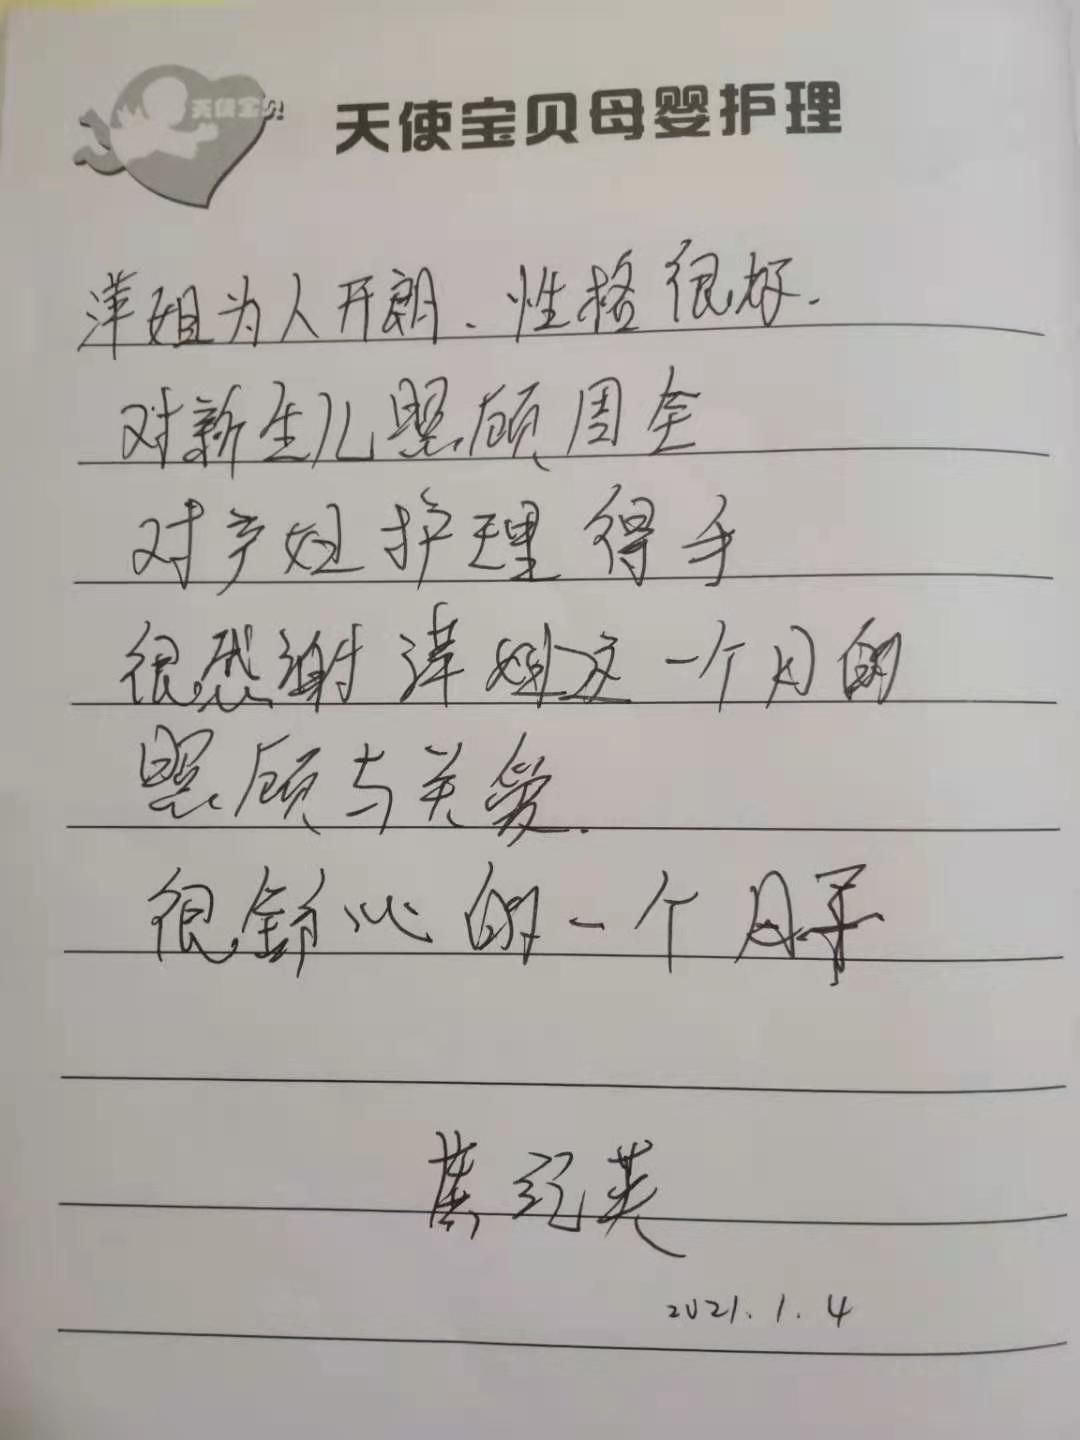 天使宝贝
天使宝贝母婴护理
萍姐为人开朗、性格很好.
对新生儿照顾周全
对产妇护理得手
很感谢萍姐这一个月的
照顾与关爱.
很舒心的一个月子
纪英
2021.1.4